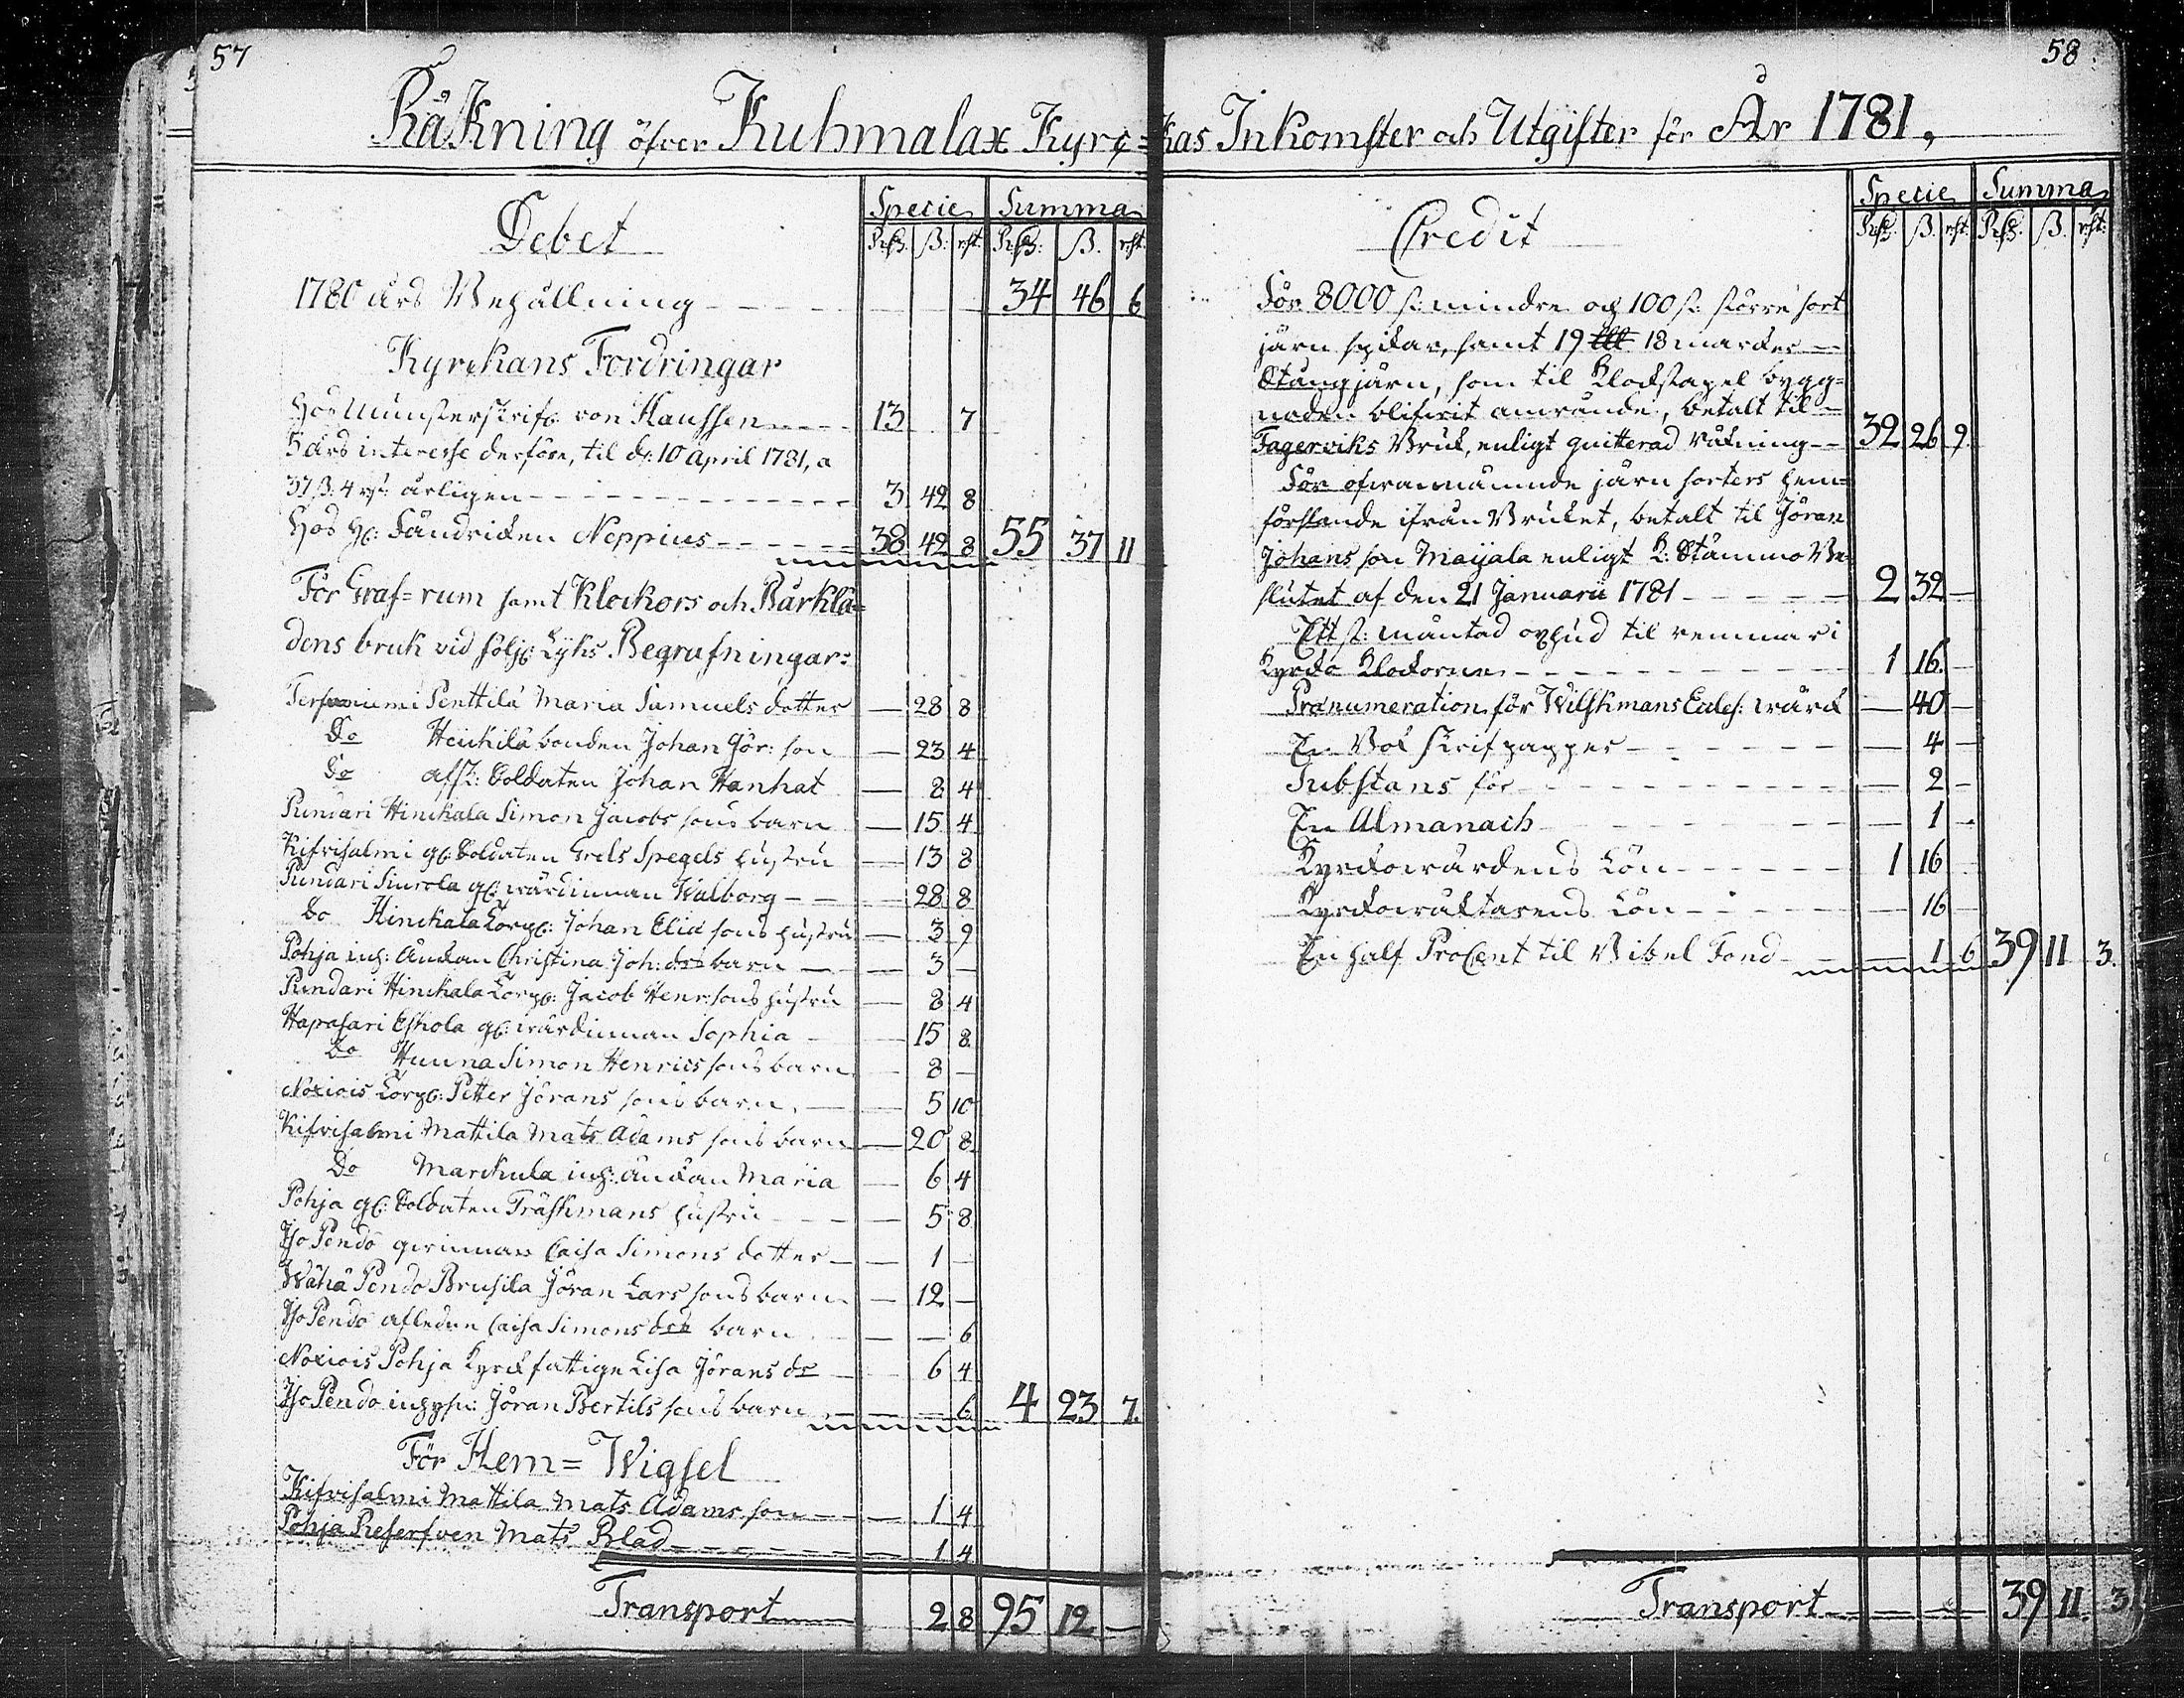 57
58
Räkning öfver Kuhmalax Kyrc=kas Inkomster och Utgifter för År 1781,
Debet
Specie Summa
Rdr: ß: rst. Rdr: ß. rst.
1780 års Behållning 34 46 6
Kyrckans Fordringar
Hos Munsterskrifv: von Klaussen 13 7
5 års interesse derföre, til d: 10 April 1781, a
37 ß. 4 rst: årligen 3 42 8
Hos H: Fändricken Neppius 38 42 8 55 37 11
För Graf=rum samt Klockors och Bårklä=
dens bruk vid följ: Lyks Begrafningar:
Penttilä Maria Samuels dotter — 28 8
Do Heickilä bonden Johan Jör: son — 23 4
Do afsk: Soldaten Johan Hanhat — 8 4
Pundari Hinckala Simon Jacobs sons barn — 15 4
Kifvisalmi gl: Soldaten Grels Spegels hustru — 13 8
Pundari Siurola gl: wärdinnan Walborg — 28 8
Do Hinckala Torp: Johan Eliæ sons hustru — 3 9
Pohja inh: Änckan Christina Joh: drs barn — 3 —
Pundari Hinckala Torp: Jacob Henr: sons hustru — 8 4
Hapasari Eskola gl: wärdinnan Sophia — 15 8
Do Hunna Simon Henrics sons barn — 8 —
Noxiois Torp: Petter Jörans sons barn — 5 10
Kifvisalmi Mattila Mats Adams sons barn — 20 8
Do Marckula inh: änckan Maria — 6 4
Pohja gl: Soldaten Träskmans hustru — 5 8
Iso Pendo qvinnan Caisa Simons dotter — 1 —
Wähä Pendo Brusila Jöran Lars sons barn — 12 —
Iso Pendo afledne Caisa Simons drs barn — — 6
Noxiois Pohja Kyrckfattige Lisa Jörans dr — 6 4
Iso Pendo inhysn: Jöran Bertils sons barn — — 6 4 23 7.
För Hem=Wigsel
Kifvisalmi Mattila Mats Adams son — 1 4
Pohja Reserfven Mats Blad — 1 4
Transport 2 8 95 12 —
Credit
Specie Summa
Rdr: ß. rst. Rdr: ß. rst:
För 8000 st: mindre och 100 st: större sort
järn spikar, samt 19 18 marcker
Stång järn, som til Klockstapel bygg=
naden blifvit använde, betalt til
Fagerviks Bruk, enligt quitterad räkning 32 26 9.
För ofvannämnde järn sorters hem=
förslande ifrån Bruket, betalt til Jöran
Johans son Maijala enligt K: Stämmo Be=
slutet af den 21 Januarii 1781 2 32 —
Ett st: oxhud til remmar i
Kyrko Klockorne 1 16. —
Prænumeration för Wilskmans Eccles: wärck — 40 —
En Bok skrifpapper — 4 —
Substans för — 2 —
En Almanach — 1 —
Kyrckowärdens Lön 1 16 —
Kyrckowäktarens Lön — 16 —
En half ProCent til Bibel Fond — 1 6 39 11 3.
Transport 39 11. 3